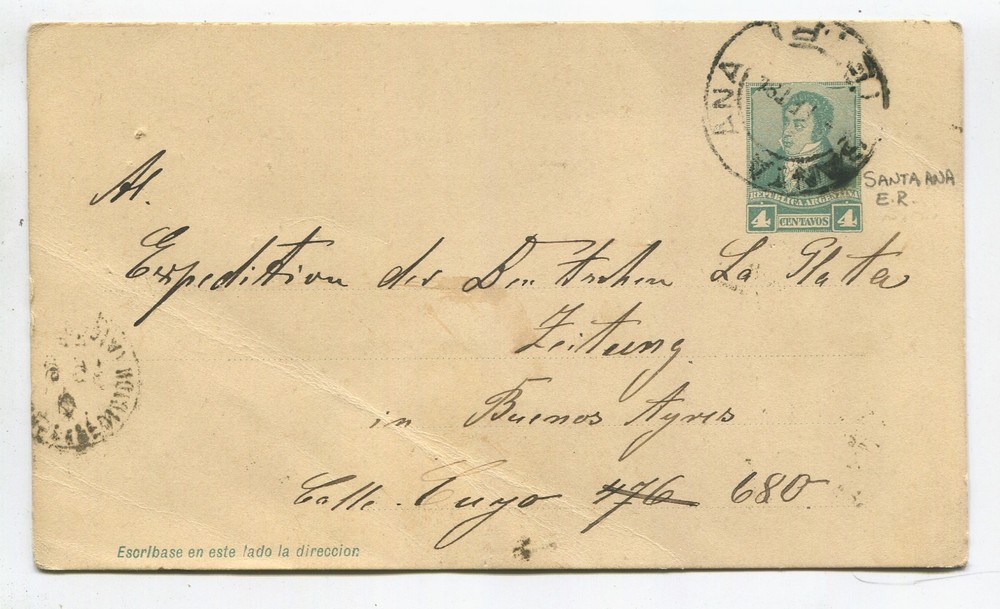 SANTA ANA
SANTA ANA
E.R.
REPUBLICA ARGENTINA
4 CENTAVOS 4
Al.
Expedition der Deutschen La Plata
Zeitung
in Buenos Ayres
Calle Cuyo 476 680
Escribase en este lado la direccion